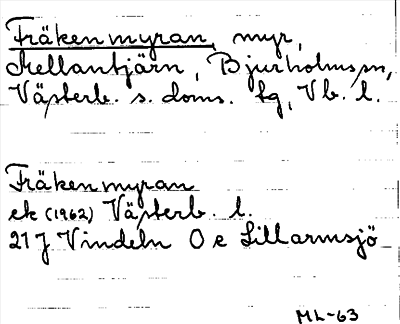 Fräkenmyran, myr,
Mellantjärn, Bjurholms sn,
Västerb. s. doms. tg, Vb. l.
Fräkenmyran
ek (1962) Västerb. l.
21 J Vindeln O e Lillarmsjö
ML-63